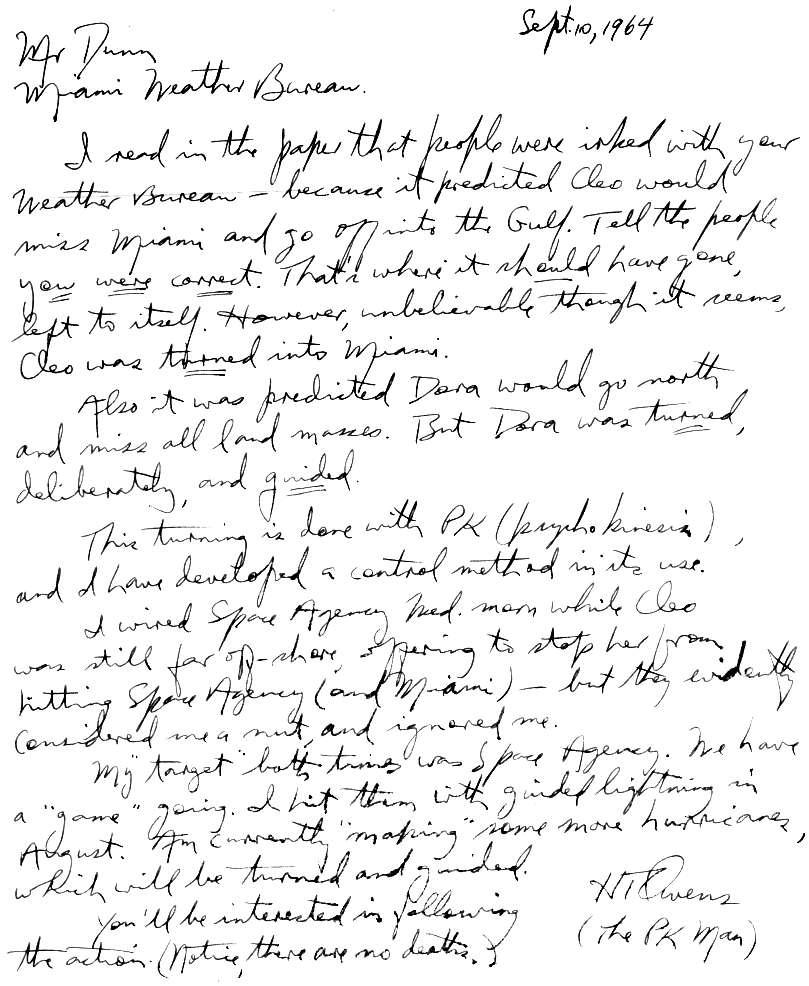 Sept. 10, 1964
Mr Dunn
Miami Weather Bureau.
I read in the paper that people were irked with your
Weather Bureau – because it predicted Cleo would
miss Miami and go off into the Gulf. Tell the people
you were correct. That's where it should have gone,
left to itself. However, unbelievable though it seems,
Cleo was turned into Miami.
Also it was predicted Dora would go north
and miss all land masses. But Dora was turned,
deliberately, and guided.
This turning is done with PK (psychokinesis),
and I have developed a control method in its use.
I wired Space Agency Wed. morn while Cleo
was still far off-shore, offering to stop her from
hitting Space Agency (and Miami) – but they evidently
considered me a nut, and ignored me.
My "target" both times was Space Agency. We have
a "game" going. I hit them with guided lightning in
August. Am currently "making" some more hurricanes,
which will be turned and guided.
You'll be interested in following
the action. (Notice, there are no deaths.)
HT Owens
(The PK Man)